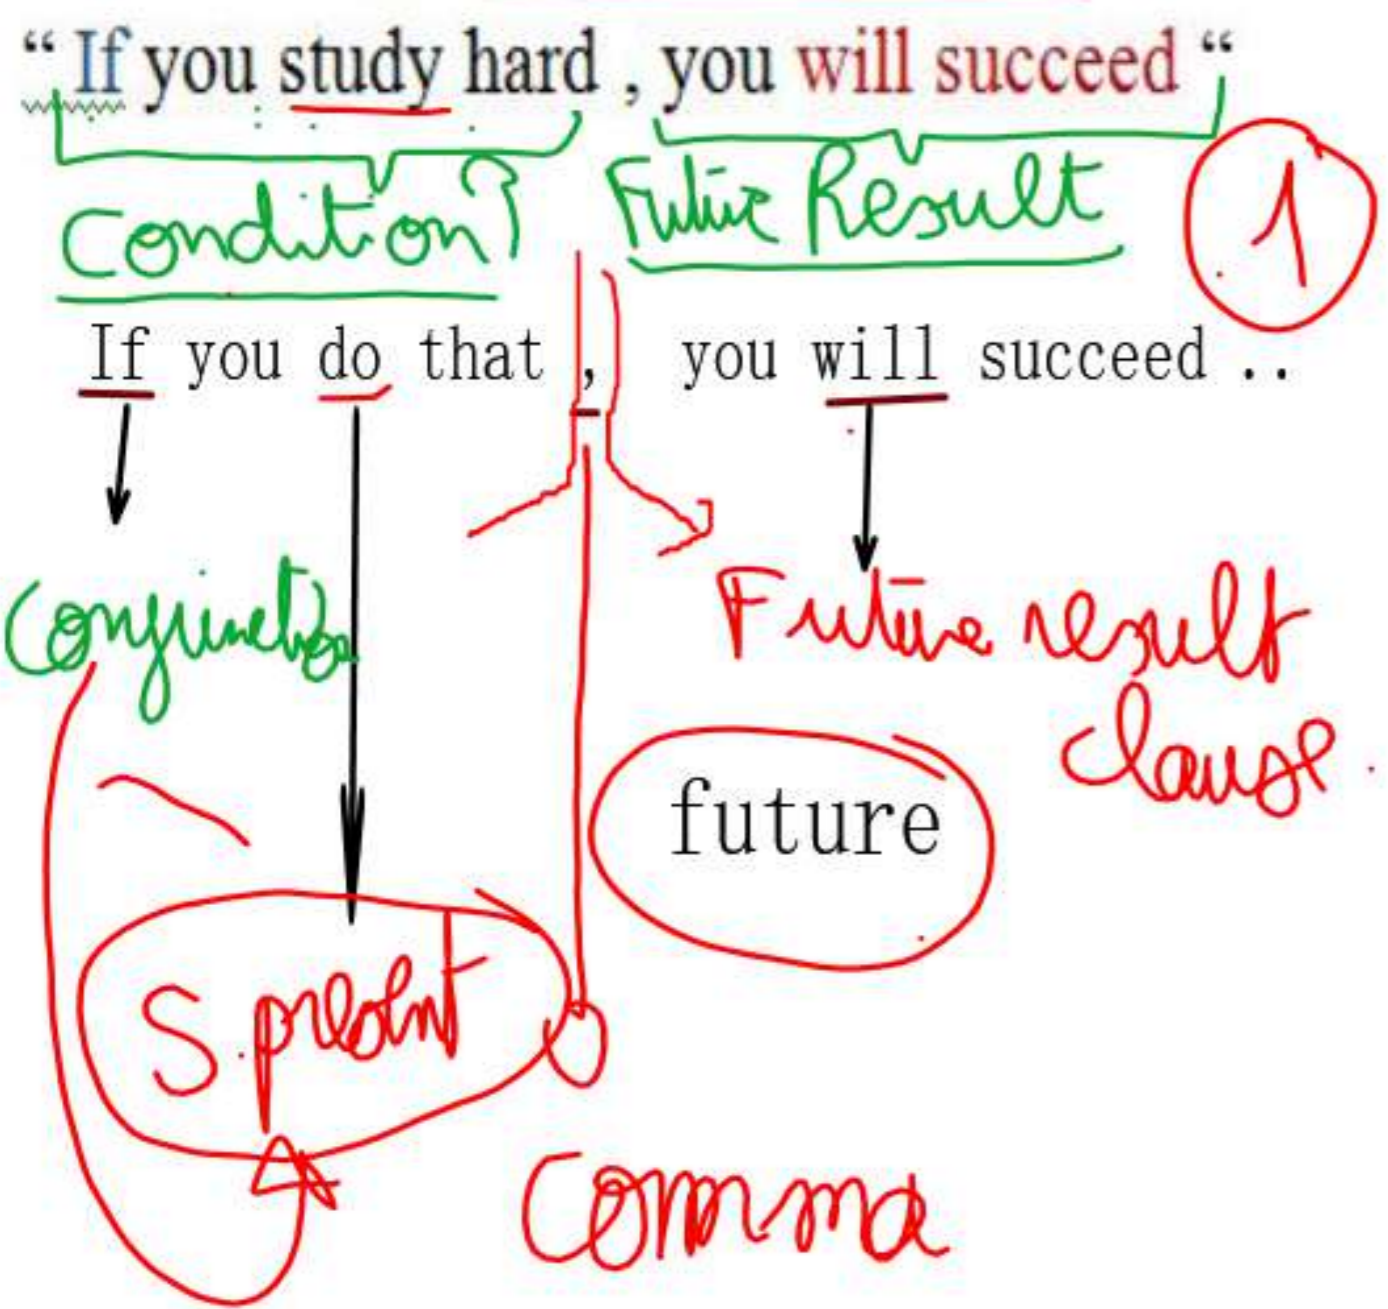 “ If you study hard , you will succeed “
Condition Future Result
1
If you do that , you will succeed ..
Conjunction Future result
clause
future
S.present
comma